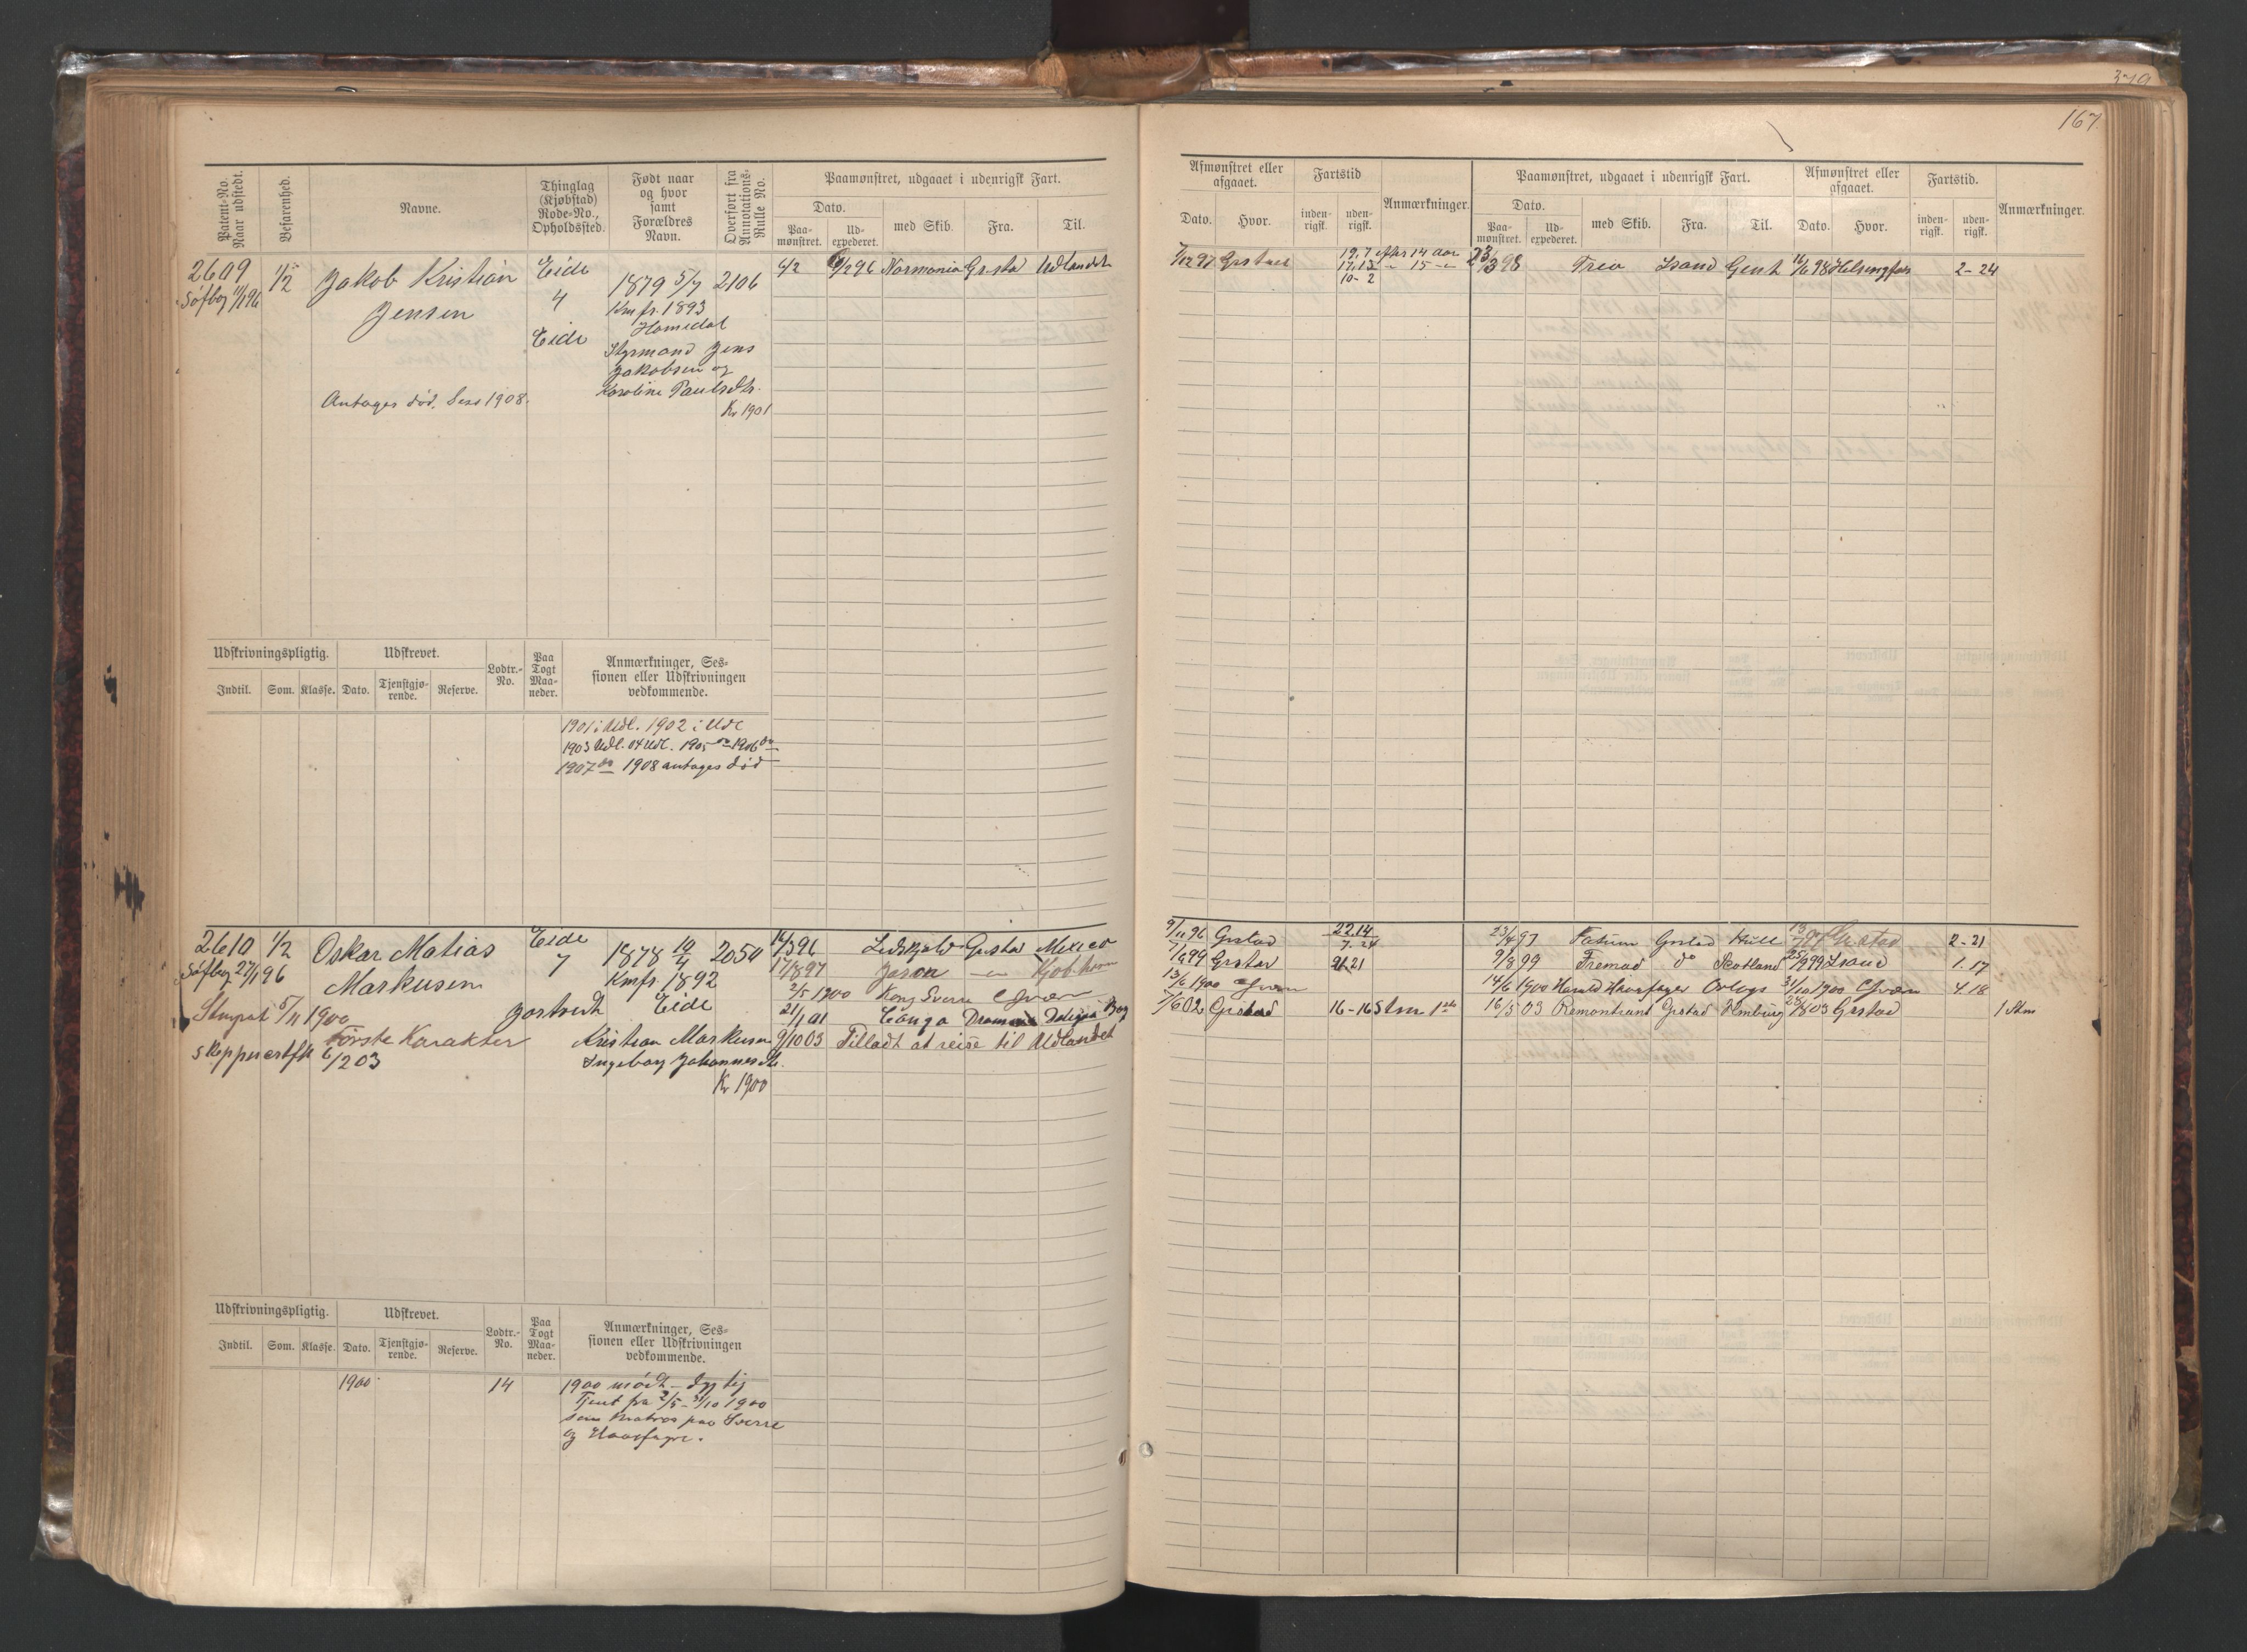 379
167
Patent-No. Naar udstedt.
Befarenhed.
Navne.
Thinglag (Kjøbstad) Rode-No., Opholdssted.
Født naar og hvor samt Forældres Navn.
Overført fra Annotations-Rulle No.
Paamønstret, udgaaet i udenrigsk Fart.
Dato.
Paa-mønstret.
Ud-expederet.
med Skib.
Fra.
Til.
Afmønstret eller afgaaet.
Fartstid
Anmærkninger.
Dato.
Hvor.
inden-rigsk.
uden-rigsk.
Paamønstret, udgaaet i udenrigsk Fart.
Dato.
Paa-mønstret.
Ud-expederet.
med Skib.
Fra.
Til.
Afmønstret eller afgaaet.
Dato.
Hvor.
Fartstid.
inden-rigsk.
uden-rigsk.
Anmærkninger.
2609 1/2 Jakob Kristian Eide 1879 5/7 2106
Søfbog 11/1 96 Jensen 4 Kmfr. 1893
Eide Homedal
Styrmand Jens
Jakobsen og
Karoline Paulsdtr.
Antages død, Sess 1908.
Kr 1901
4/2 6/2 96 Normania Grstad Udlandet
7/12 97 Grstad 19. 7 efter 14 aar
17. 13 " 15 "
10 - 2
23/3 98 Treo Lsand Gent 16/6 98 Helsingfors 2-24
Udskrivningspligtig.
Udskrevet.
Lodtr.-No.
Paa Togt Maa-neder.
Anmærkninger, Ses-sionen eller Udskrivningen vedkommende.
Indtil. Som. Klasse. Dato. Tjenstgjø-rende. Reserve.
1901 i Udl. 1902 i Udl
1903 Udl. 04 Udl. 1905 do 1906 do
1907 do 1908 antages død
2610 1/2 Oskar Matias Eide 1878 10/4 2054
Søfbog 27/1 96 Markusen 7 Kmfr 1892
Jortvedt Eide
Stmpat 5/11 1900
Første Karakter Kristian Markusen
Skipperertfk 6/2 03 Ingeborg Johannesdtr.
Kr 1900
14/3 96 Ledskjalv Grstad Mexico
17/8 97 Jason " Kjøbhavn
2/5 1900 Kong Sverre Chværn
21/1 01 Conga Dram
9/10 03 Tilladt at reise til Udlandet
9/11 96 Grstad 22.14
7. 24
7/6 99 Grstad 21
13/6 1900 Chværn
7/6 02 Grstad 16-16 Stm 1ste
23/4 97 Fatum Grstad Hull Grstad 2-21
9/8 99 Fremad do Skotland 25/9 99 Lsand 1.17
14/6 1900 Harald Haarfager Orlogs 31/10 1900 Chværn 4.18
16/5 03 Remonstrant Grstad Hmburg 28/8 03 Grstad 1 Stm
Udskrivningspligtig.
Udskrevet.
Lodtr.-No.
Paa Togt Maa-neder.
Anmærkninger, Ses-sionen eller Udskrivningen vedkommende.
Indtil. Som. Klasse. Dato. Tjenstgjø-rende. Reserve.
1900 14 1900 mødt - dygtig
Tjent fra 2/5 - 31/10 1900
som Matros paa Sverre
og Haarfagre.